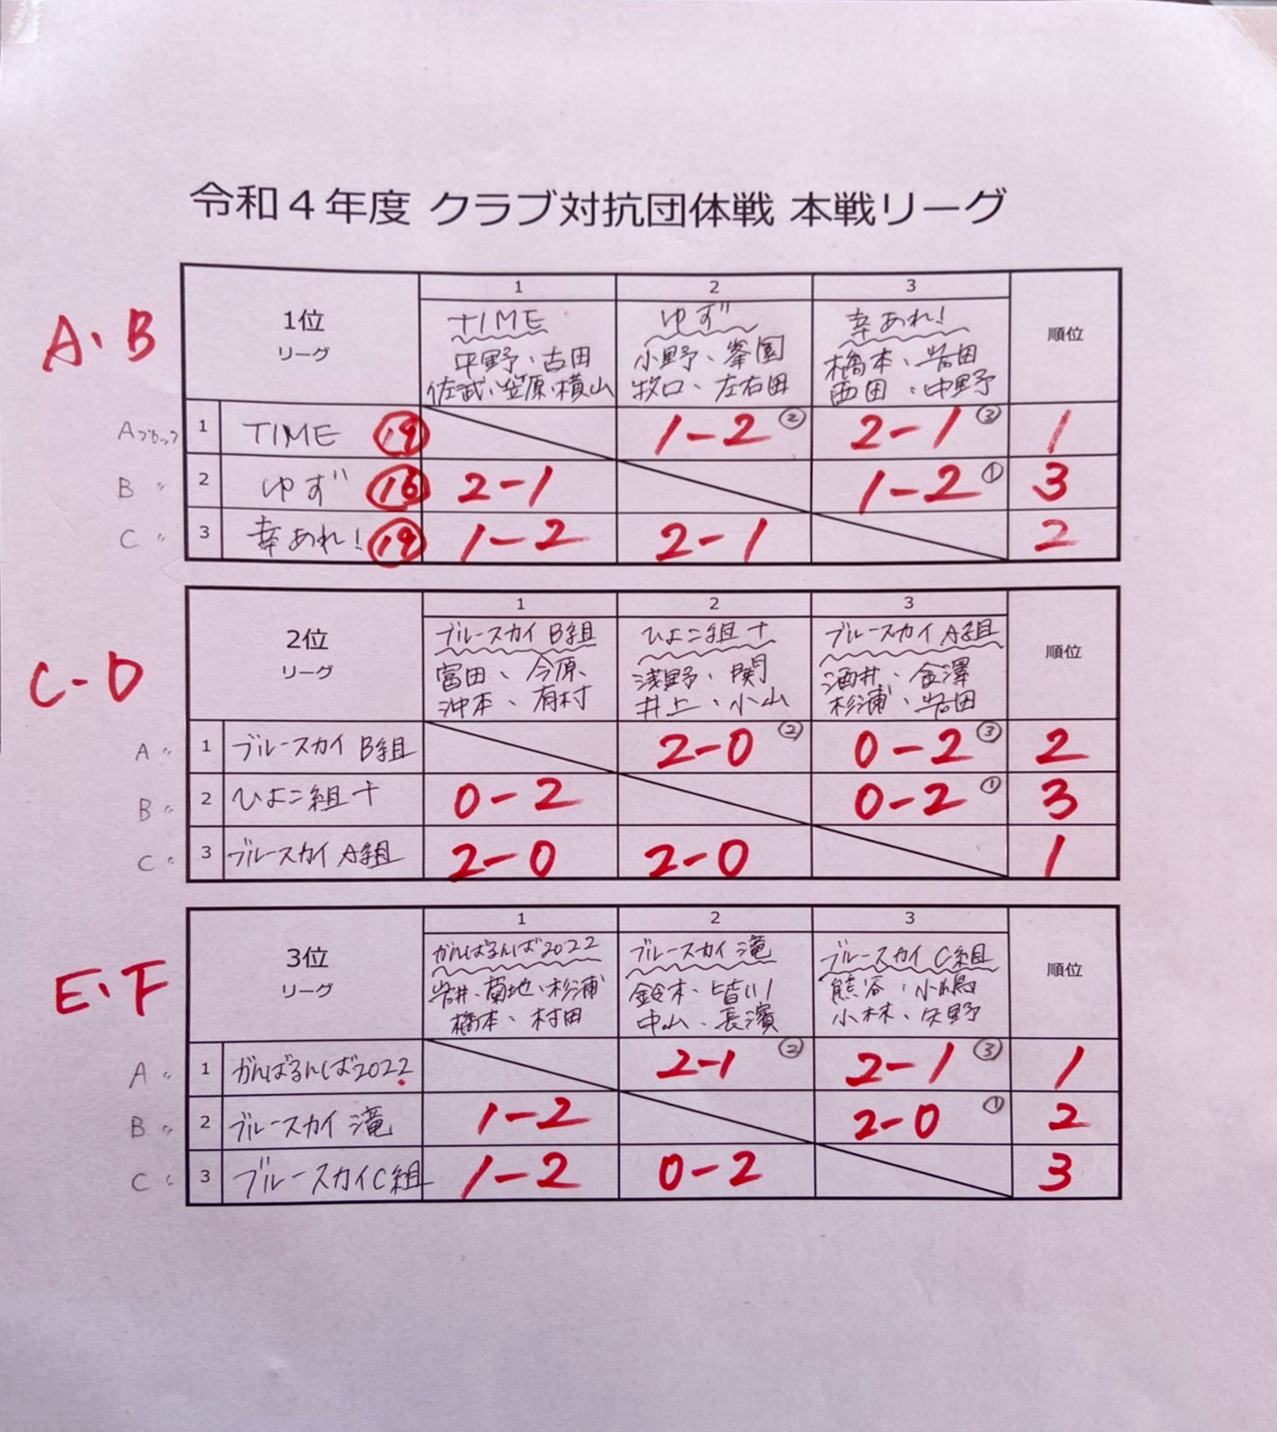 令和４年度 クラブ対抗団体戦 本戦リーグ
A、B
1位
リーグ
1 2 3
TIME ゆず 幸あれ！ 順位
平野、古田 小野、峯園 橋本、岩田
佐武、笠原、横山 牧口、左右田 西田、中野
Aブロック 1 TIME ⑲ 1-2 ② 2-1 ③ 1
B 〃 2 ゆず ⑯ 2-1 1-2 ① 3
C 〃 3 幸あれ！ ⑲ 1-2 2-1 2
C-D
2位
リーグ
1 2 3
ブルースカイ B組 ひよこ組＋ ブルースカイ A組 順位
富田、今原、 浅野、関 酒井、金澤
沖本、有村 井上、小山 杉浦、岩田
A 〃 1 ブルースカイ B組 2-0 ② 0-2 ③ 2
B 〃 2 ひよこ組＋ 0-2 0-2 ① 3
C 〃 3 ブルースカイ A組 2-0 2-0 1
E、F
3位
リーグ
1 2 3
がんばるんば2022 ブルースカイ 滝 ブルースカイ C組 順位
岩井、菊地、杉浦 鈴木、皆川 熊谷、小嶋
橋本、村田 中山、長濱 小林、矢野
A 〃 1 がんばるんば2022 2-1 ② 2-1 ③ 1
B 〃 2 ブルースカイ 滝 1-2 2-0 ① 2
C 〃 3 ブルースカイC組 1-2 0-2 3